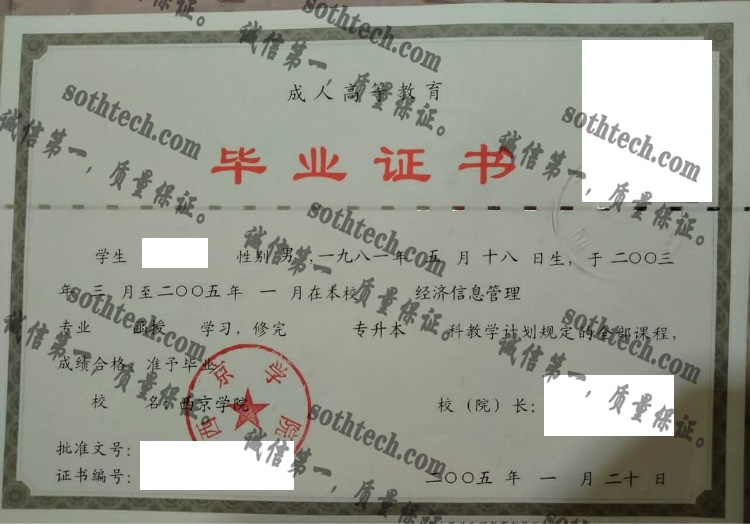 成人高等教育
毕业证书
学生 性别 男 ,一九八一年 五 月 十八 日生, 于 二〇〇三
年 三 月至二〇〇五年 一 月在本校 经济信息管理
专业 函授 学习, 修完 专升本 科教学计划规定的全部课程,
成绩合格, 准予毕业
校 名: 西京学院
校（院）长:
西京学院
批准文号:
证书编号:
二〇〇五 年 一 月 二十 日
sothtech.com
诚信第一，质量保证。
sothtech.com
诚信第一，质量保证。
sothtech.com
诚信第一，质量保证。
sothtech.com
诚信第一，质量保证。
sothtech.com
诚信第一，质量保证。
sothtech.com
诚信第一，质量保证。
sothtech.com
诚信第一，质量保证。
sothtech.com
诚信第一，质量保证。
sothtech.com
诚信第一，质量保证。